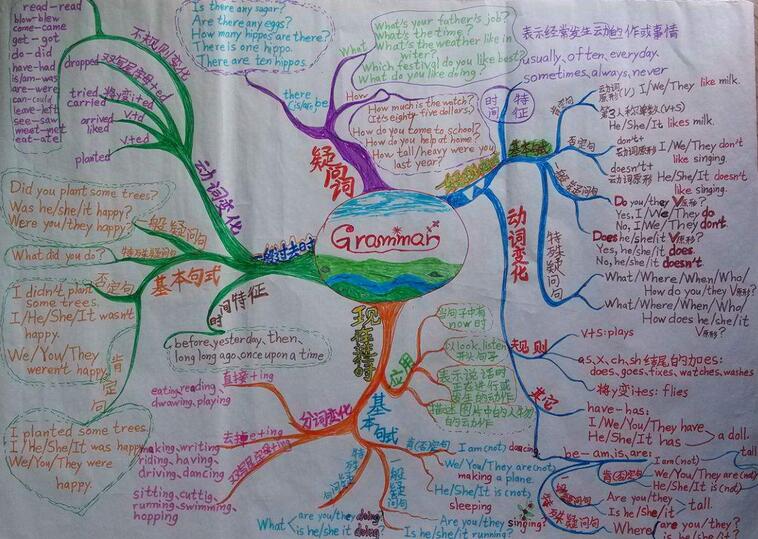 Grammar
一般过去时
动词变化
不规则变化
read-read
blow-blew
come-came
get-got
do-did
have-had
is/am-was
are-were
can-could
leave-left
see-saw
meet-met
eat-ate
dropped
双写尾字母+ed
tried
carried
将y变i+ed
arrived
liked
v+d
planted
v+ed
基本句式
Did you plant some trees?
Was he/she/it happy?
Were you/they happy?
一般疑问句
What did you do?
特殊疑问句
I didn't plant
some trees.
I/He/She/It wasn't
happy.
We/You/They
weren't happy.
否定句
I planted some trees.
I/He/She/It was happy.
We/You/They were
happy.
肯定句
时间特征
before, yesterday, then,
long long ago, once upon a time
疑问词
there
(is/are) be
Is there any sugar?
Are there any eggs?
How many hippos are there?
There is one hippo.
There are ten hippos.
What
What's your father's job?
What's the time?
What's the weather like in
witer?
Which festival do you like best?
What do you like doing?
How
How much is the watch?
(It's eighty-five dollars.)
How do you tome to school?
How do you help at home?
How tall/heavy were you
last year?
时间
特征
表示经常发生的动作或事情
usually, often, everyday,
sometimes, always, never
基本句式
肯定句
动词原形(v) I/We/They like milk.
第3人称单数(v+s)
He/She/It likes milk.
否定句
don't+
动词原形 I/We/They don't
like singing.
doesn't+
动词原形 He/She/It doesn't
like singing.
一般疑问句
Do you/they V原形?
Yes, I/We/They do
No, I/We/They don't.
Does he/she/it V原形?
Yes, he/she/it does.
No, he/she/it doesn't.
特殊疑问句
What/Where/When/Who/
How do you/they V原形?
What/Where/When/Who/
How does he/she/it
V原形?
动词变化
规则
v+s: plays
as, x, ch, sh 结尾的加es:
does, goes, fixes, watches, washes
将y变i+es: flies
其它
have-has:
I/We/You/They have
He/She/It has
a doll.
be-am, is, are:
肯(否)定句
I am (not)
We/You/They are (not)
He/She/It is (not)
tall
一般疑问句
Are you/they
Is he/she/it
tall.
特殊疑问句
Where
are you/they?
is he/she/it?
现在进行时
应用
当句子中有
now时
以look, listen
开头句子
表示说话时
正在进行或
发生的动作
描述图片中的人物
的动作
分词变化
直接+ing
eating, reading,
drwawing, playing
去掉e+ing
making, writing
riding, having,
driving, dancing
双写尾字母+ing
sitting, cuttig,
running, swimming,
hopping
基本句式
肯(否)定句
I am (not) dancing
We/You/They are (not)
making a plane.
He/She/It is (not)
sleeping
一般疑问句
Are you/they
Is he/she/it running?
singing?
特殊疑问句
What
are you/they doing
is he/she it doing?